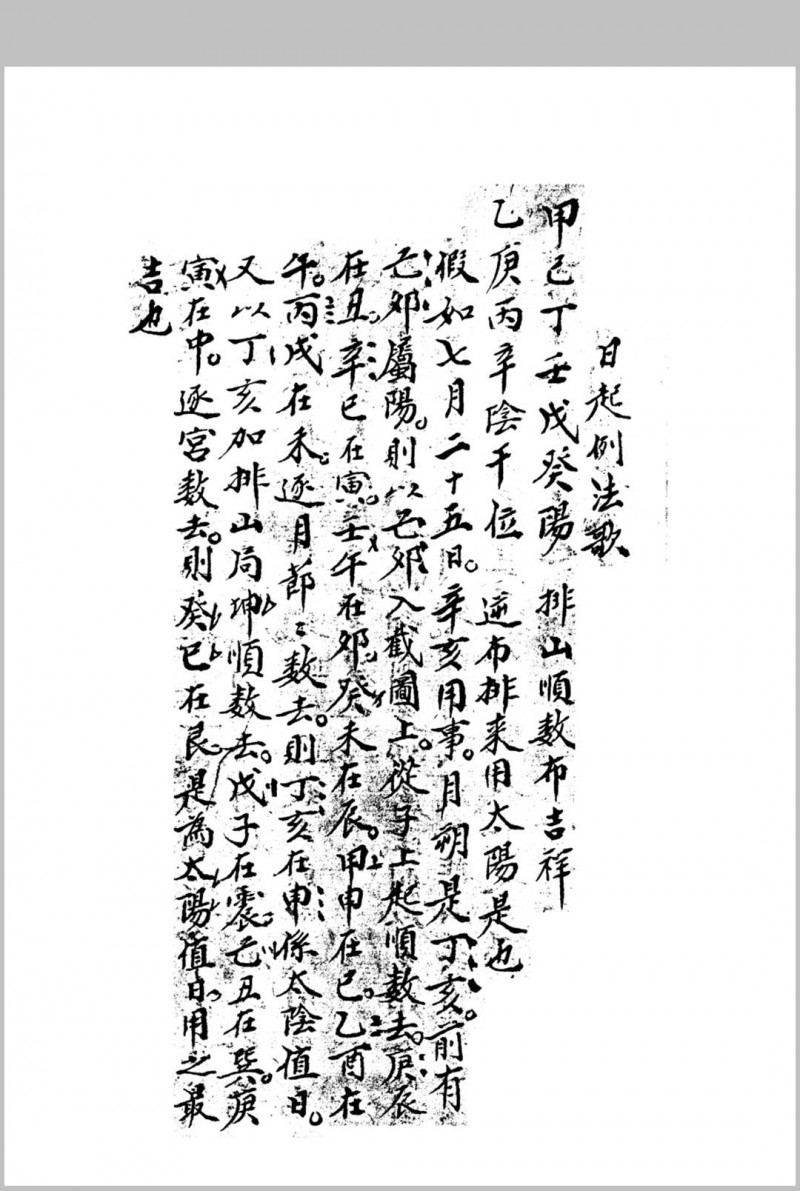 日起例法歌
甲己丁壬戊癸陽　排山順数布吉祥
乙庚丙辛陰干位　逆布排来用太陽是也
假如七月二十五日。辛亥用事。月朔是丁亥。前有
己卯屬陽。則以己卯入截圖上。從子上起順数去。庚辰
在丑。辛巳在寅。壬午在卯。癸未在辰。甲申在巳。乙酉在
午。丙戌在未。逐月節々数去。則丁亥在申係太陰值日。
又以丁亥加排山局坤順数去。戊子在震。己丑在巽。庚
寅在中。逐宮数去。則癸巳在艮是為太陽值日。用之最
吉也